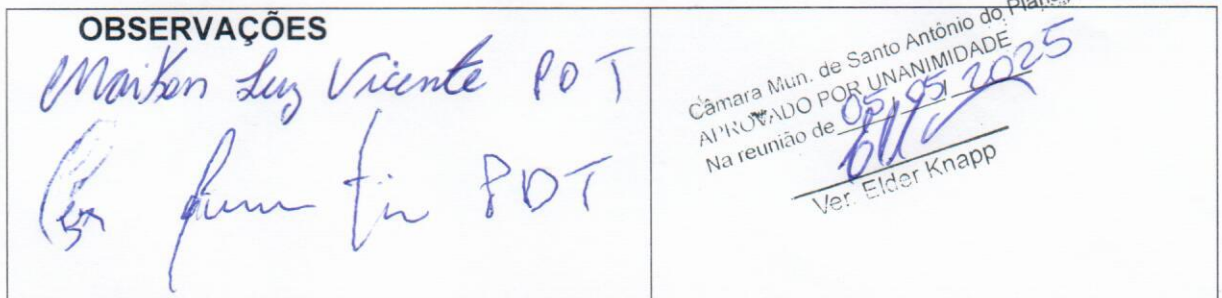 OBSERVAÇÕES
Maikon Luz Vicente PDT
PDT
Câmara Mun. de Santo Antônio do
APROVADO POR UNANIMIDADE
Na reunião de 05/05/2025
Ver. Elder Knapp